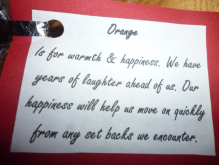 Orange
Is for warmth & happiness. We have
years of laughter ahead of us. Our
happiness will help us move on quickly
from any set backs we encounter.